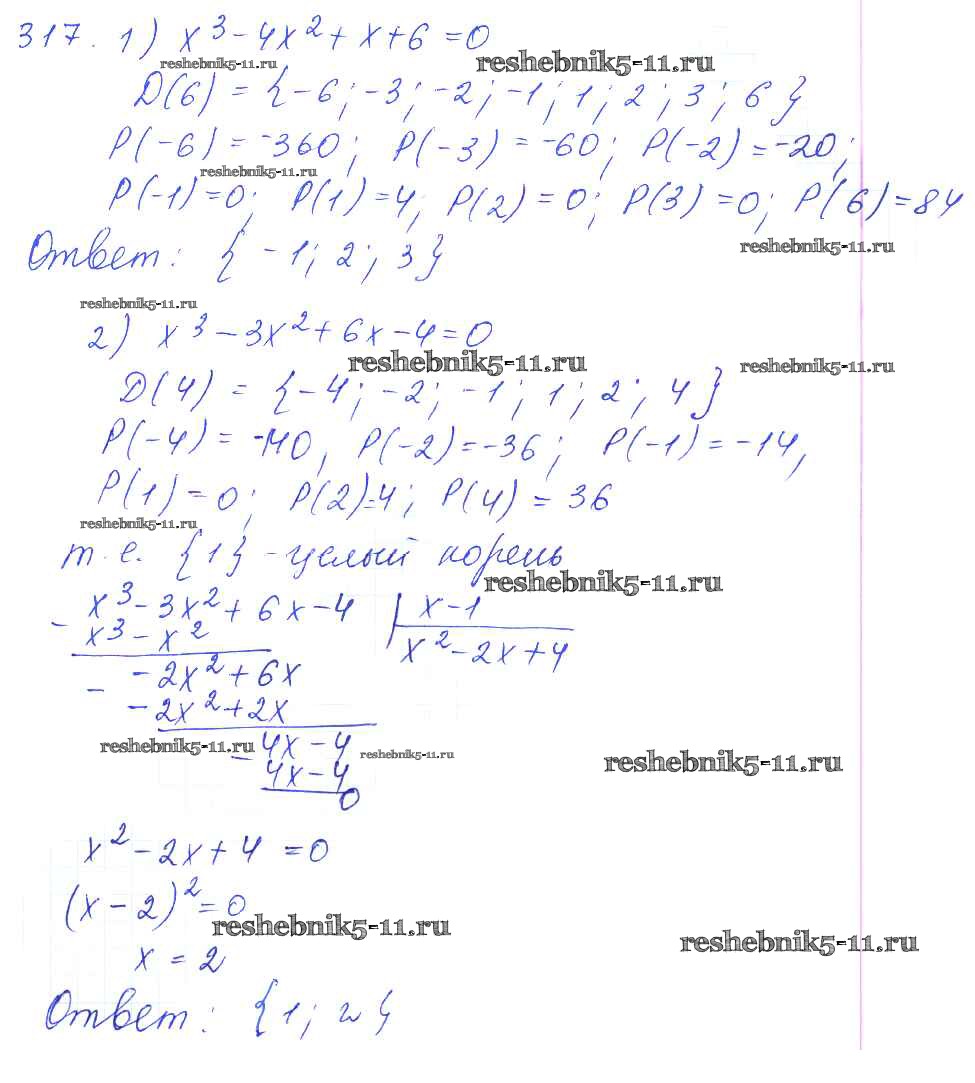 317. 1) x³ - 4x² + x + 6 = 0
reshebnik5-11.ru reshebnik5-11.ru
D(6) = {-6; -3; -2; -1; 1; 2; 3; 6}
P(-6) = -360; P(-3) = -60; P(-2) = -20;
reshebnik5-11.ru
P(-1) = 0; P(1) = 4; P(2) = 0; P(3) = 0; P(6) = 84
reshebnik5-11.ru
Ответ: {-1; 2; 3}
reshebnik5-11.ru
2) x³ - 3x² + 6x - 4 = 0
reshebnik5-11.ru reshebnik5-11.ru
D(4) = {-4; -2; -1; 1; 2; 4}
P(-4) = -140, P(-2) = -36; P(-1) = -14,
P(1) = 0; P(2) = 4; P(4) = 36
reshebnik5-11.ru
т.е. {1} - целый корень
reshebnik5-11.ru
- x³ - 3x² + 6x - 4 | x - 1
x³ - x² x² - 2x + 4
- -2x² + 6x
-2x² + 2x
reshebnik5-11.ru - 4x - 4 reshebnik5-11.ru
4x - 4 reshebnik5-11.ru
0
x² - 2x + 4 = 0
(x - 2)² = 0
reshebnik5-11.ru reshebnik5-11.ru
x = 2
Ответ: {1; 2}